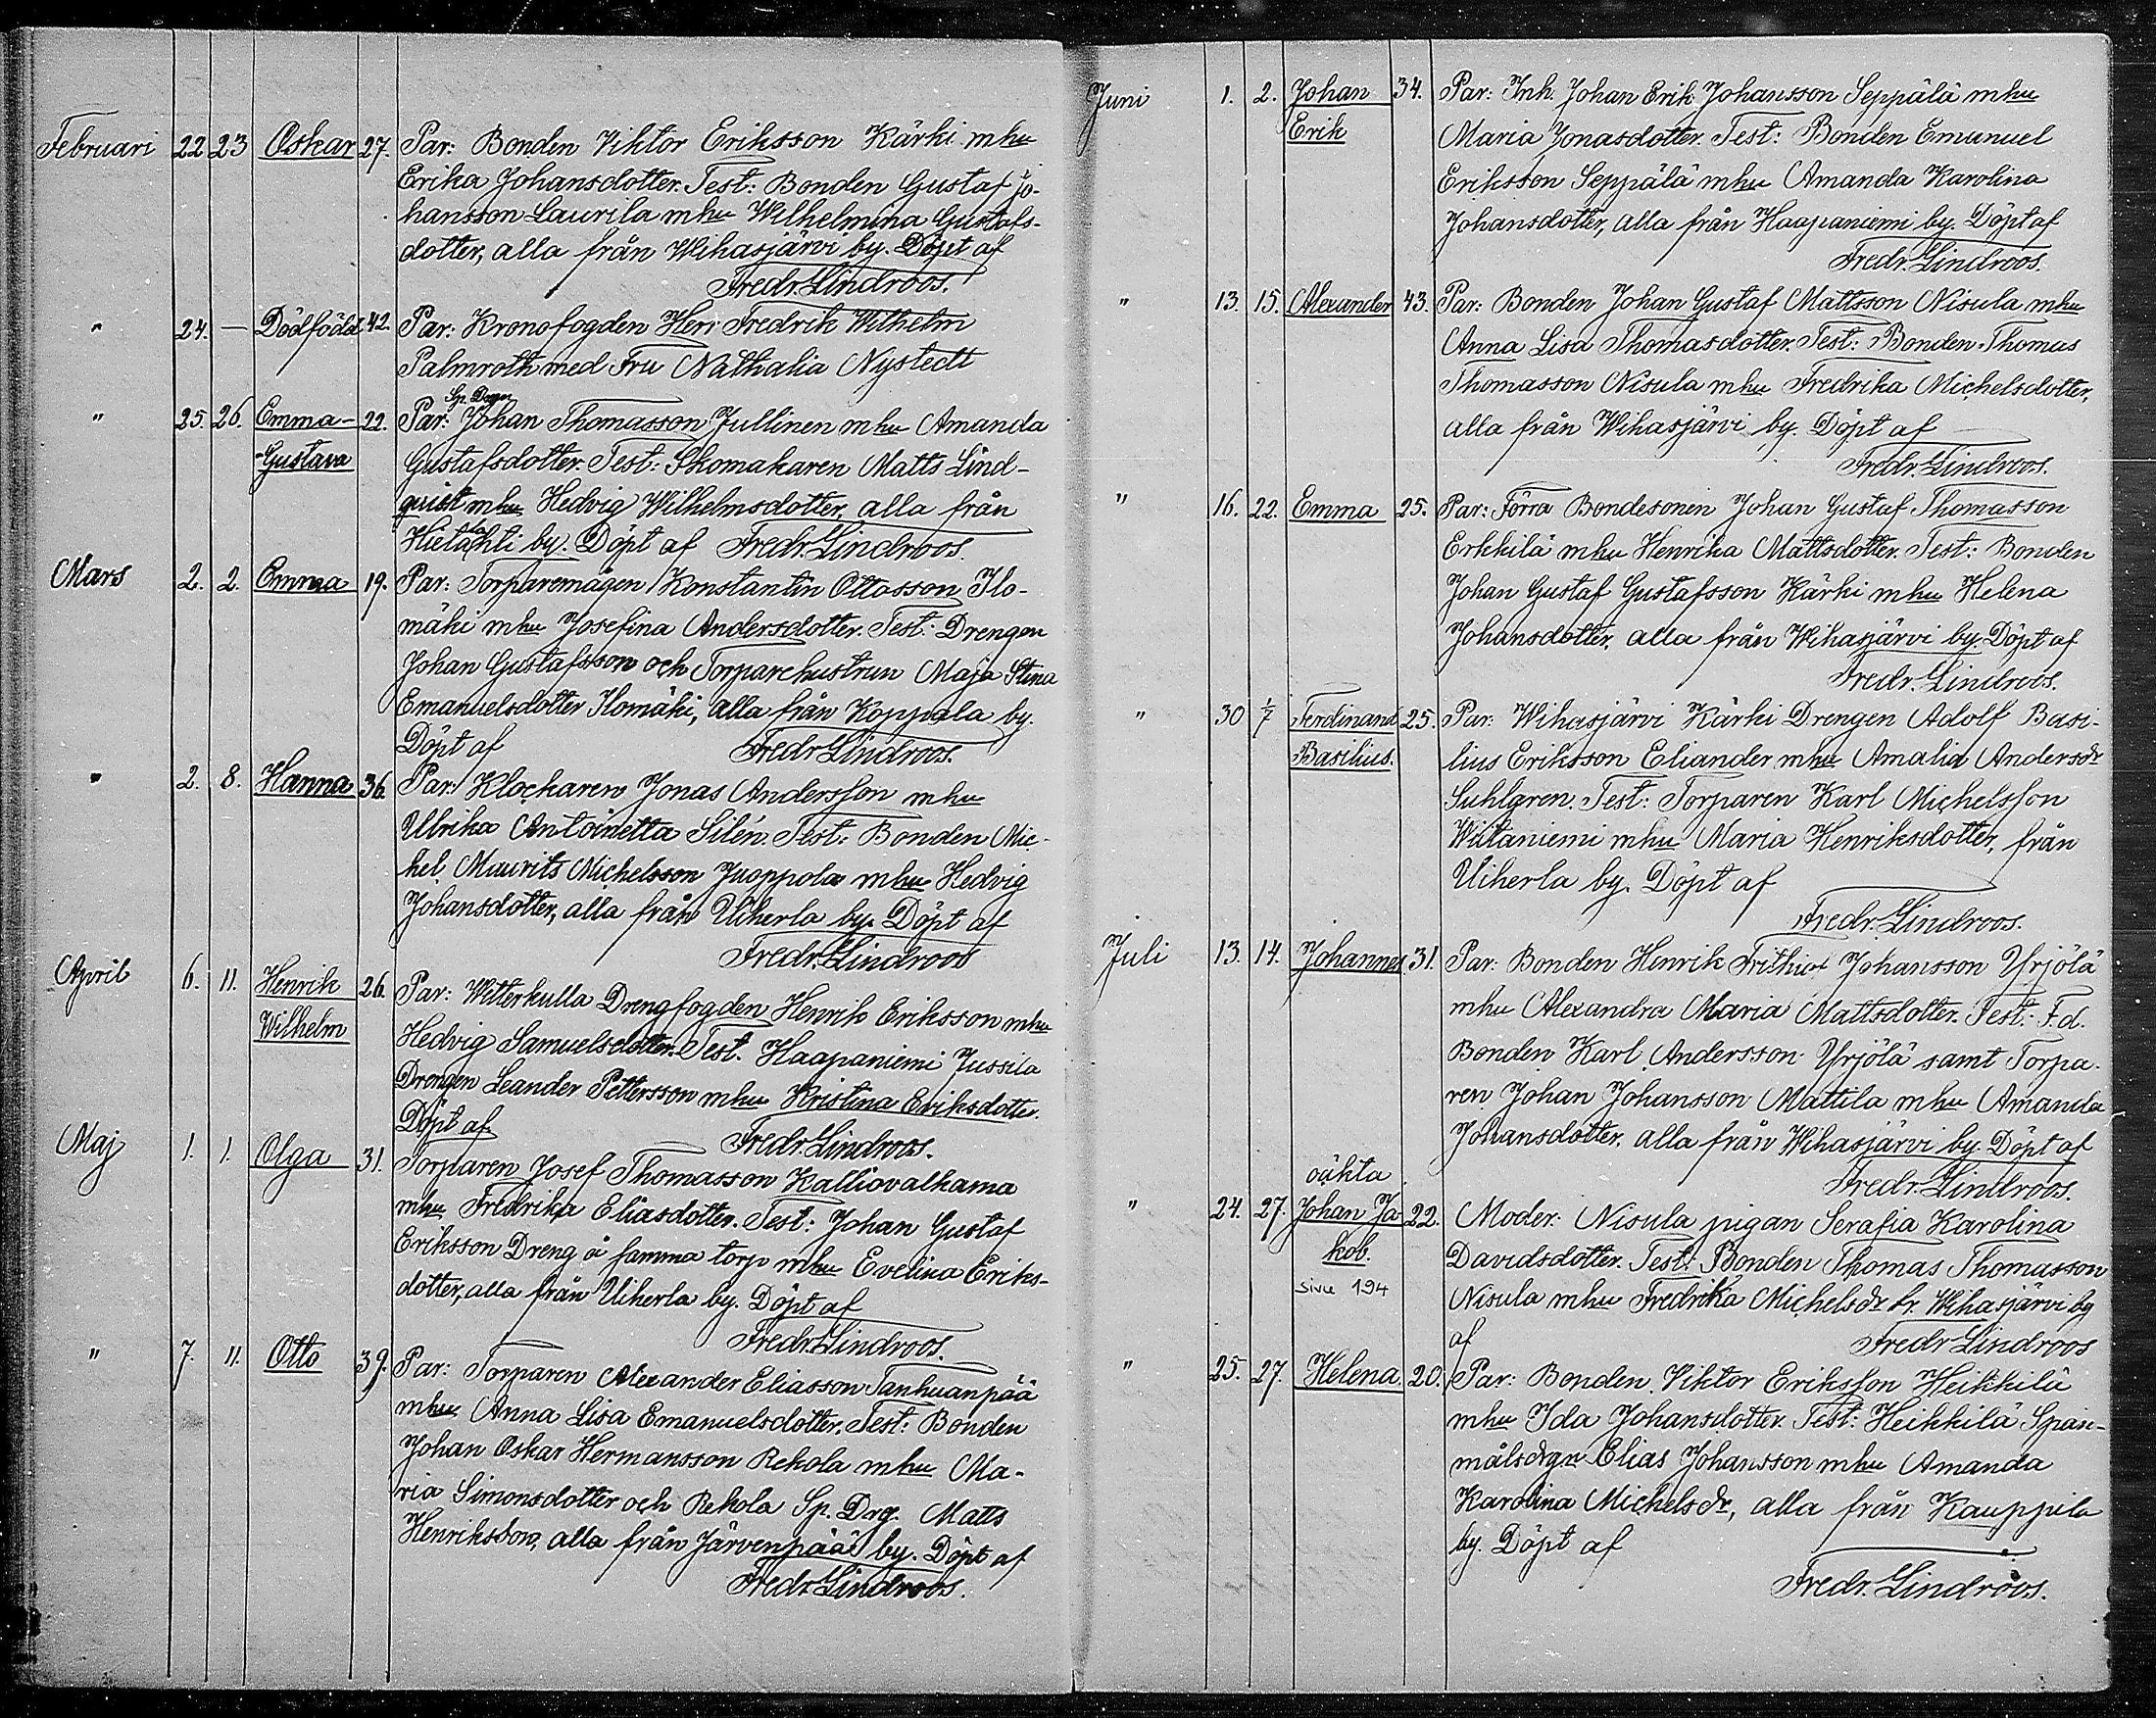 Februari 22 23 Oskar 27. Par: Bonden Viktor Eriksson Kärki mhu
Erika Johansdotter. Test: Bonden Gustaf Jo-
hansson Laurila mhu Wilhelmina Gustafs-
dotter, alla från Wihasjärvi by. Döpt af
Fredr. Lindroos.
" 24. — Dödfödd 42. Par: Kronofogden Herr Fredrik Wilhelm
Palmroth med Fru Nathalia Nystedt
Sp. Drgn
" 25. 26. Emma- 22. Par: Johan Thomasson Jullinen mhu Amanda
-Gustava Gustafsdotter. Test: Skomakaren Matts Lind-
quist mhu Hedvig Wilhelmsdotter, alla från
Hietahti by. Döpt af Fredr. Lindroos.
Mars 2. 2. Emma 19. Par: Torparemågen Konstantin Ottosson Ilo-
mäki mhu Josefina Andersdotter. Test: Drengen
Johan Gustafsson och Torparehustrun Maja Stina
Emanuelsdotter Ilomäki, alla från Koppala by.
Döpt af Fredr. Lindroos.
" 2. 8. Hanna 36. Par: Klockaren Jonas Andersson mhu
Ulrika Antoinetta Silén. Test: Bonden Mic-
hel Maurits Michelsson Juoppola mhu Hedvig
Johansdotter, alla från Uiherla by. Döpt af
Fredr. Lindroos
April 6. 11. Henrik 26. Par: Witterkulla Drengfogden Henrik Eriksson mhu
Wilhelm Hedvig Samuelsdotter. Test. Haapaniemi Jussila
Drengen Leander Pettersson mhu Kristina Eriksdotter.
Döpt af Fredr. Lindroos.
Maj 1. 1. Olga 31. Torparen Josef Thomasson Kalliovalkama
mhu Fredrika Eliasdotter. Test: Johan Gustaf
Eriksson Dreng å samma torp mhu Evelina Eriks-
dotter, alla från Uiherla by. Döpt af
Fredr. Lindroos.
" 7. 11. Otto 39. Par: Torparen Alexander Eliasson Tanhuanpää
mhu Anna Lisa Emanuelsdotter. Test: Bonden
Johan Oskar Hermansson Rekola mhu Ma-
ria Simonsdotter och Rekola Sp. Drg. Matts
Henriksson, alla från Järvenpää by. Döpt af
Fredr. Lindroos.
Juni 1. 2. Johan 34. Par: Inh. Johan Erik Johansson Seppälä mhu
Erik Maria Jonasdotter. Test: Bonden Emanuel
Eriksson Seppälä mhu Amanda Karolina
Johansdotter, alla från Haapaniemi by. Döpt af
Fredr. Lindroos.
" 13. 15. Alexander 43. Par: Bonden Johan Gustaf Mattsson Nisula mhu
Anna Lisa Thomasdotter. Test: Bonden Thomas
Thomasson Nisula mhu Fredrika Michelsdotter,
alla från Wihasjärvi by. Döpt af
Fredr. Lindroos.
" 16. 22. Emma 25. Par: Förra Bondesonen Johan Gustaf Thomasson
Erkkilä mhu Henrika Mattsdotter. Test: Bonden
Johan Gustaf Gustafsson Kärki mhu Helena
Johansdotter, alla från Wihasjärvi by. Döpt af
Fredr. Lindroos.
" 30 1/7 Ferdinand 25. Par: Wihasjärvi Kärki Drengen Adolf Basi-
Basilius. lius Eriksson Eliander mhu Amalia Andersdr
Suhlgren. Test: Torparen Karl Michelsson
Wiitaniemi mhu Maria Henriksdotter, från
Uiherla by. Döpt af
Fredr. Lindroos.
Juli 13. 14. Johannes 31. Par: Bonden Henrik Frithiof Johansson Yrjölä
mhu Alexandra Maria Mattsdotter. Test: F.d.
Bonden Karl Andersson Yrjölä samt Torpa-
ren Johan Johansson Mattila mhu Amanda
Johansdotter, alla från Wihasjärvi by. Döpt af
Fredr. Lindroos.
oäkta
" 24. 27. Johan Ja- 22. Moder: Nisula pigan Serafia Karolina
kob. Davidsdotter. Test: Bonden Thomas Thomasson
sivu 194 Nisula mhu Fredrika Michelsdr fr. Wihasjärvi by
af Fredr Lindroos
" 25. 27. Helena 20. Par: Bonden Viktor Eriksson Heikkilä
mhu Ida Johansdotter. Test: Heikkilä Span-
målsdrgn Elias Johansson mhu Amanda
Karolina Michelsdr, alla från Kauppila
by. Döpt af
Fredr. Lindroos.